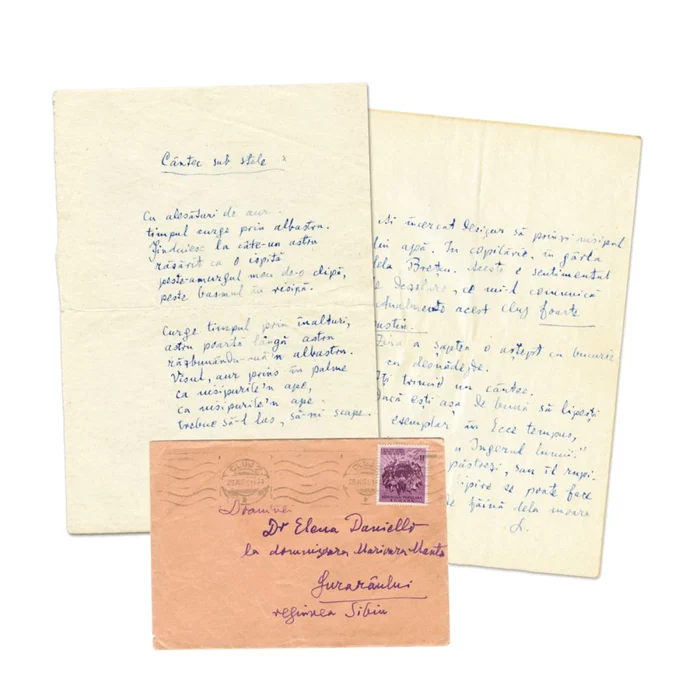 Cântec sub stele x
Cu alesături de aur
timpul curge prin albastru.
Jinduiesc la câte-un astru
răsărit ca o ispită
peste-amurgul meu de-o clipă,
peste basmul în risipă.
Curge timpul prin înalturi,
astru poartă lângă astru
răzbunându-mă'n albastru.
Visul, aur prins în palme
ca nisipurile'n ape,
ca nisipurile'n ape
trebue să-l las, să-mi scape.
Ai încercat desigur să prinzi nisipul
apă. In copilărie, în gârla
dela Bretan. Acesta e sentimentul
de desolare, ce mi-l comunică
actualmente acest Cluj foarte
Ziua a șaptea o aștept cu bucurie
cu desnădejde.
Iți trimit un cântec.
Dacă ești așa de bună să lipești
exemplar în Ecce tempus,
"Ingerul lumii."
păstrezi, sau îl rupi.
lipire se poate face
de făină dela moara
L.
CLUJ
CLUJ
Doamnei
Dr Elena Daniello
la domnișoara Marioara Manta
Gurarâului
regiunea Sibiu